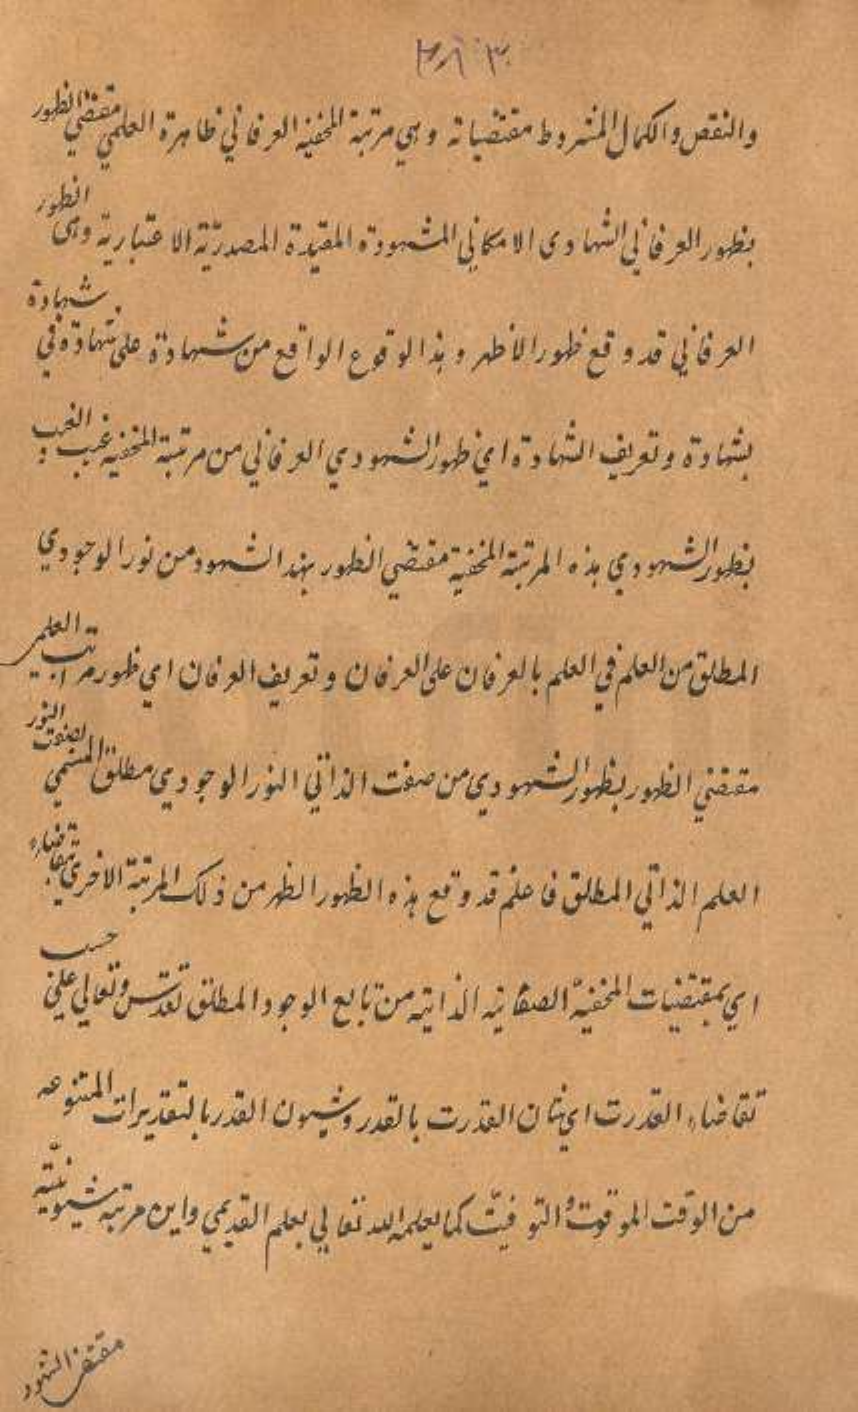 والنقص والكمال المشروط مقتضياته وهي مرتبة المخفية العرفاني ظاهرة العلمي مقتضي الظهور
بظهور العرفاني الشهادي الامكاني المشهودة المقيدة المصدرية الاعتبارية وهي الظهور
العرفاني قد وقع ظهور الاظهر وهذا الوقوع الواقع من شهادة على شهادة في شهادة
بشهادة وتعريف الشهادة اي ظهور الشهودي العرفاني من مرتبة المخفية غيب الغيب
بظهور الشهودي هذه المرتبة المخفية مقتضي الظهور بهذا الشهود من نور الوجودي
المطلق من العلم في العلم بالعرفان على العرفان وتعريف العرفان اي ظهور مراتب العلم
مقتضي الظهور بظهور الشهودي من صفت الذاتي النور الوجودي مطلق المسمي بصفت النور
العلم الذاتي المطلق فاعلم قد وقع هذه الظهور الظهر من ذلك المرتبة الاخري بتقاضاء
اي بمقتضيات المخفية الصفاتية الذاتية من تابع الوجود المطلق تقدس وتعالي علي حسب
تقاضاء القدرت اي شان القدرت بالقدر وشيون القدر بالتقديرات المتنوعه
من الوقت الموقوت والتوقيت كما يعلمه الله تعالي بعلم القديمي واين مرتبه شيونيته
مقتضي الشهود